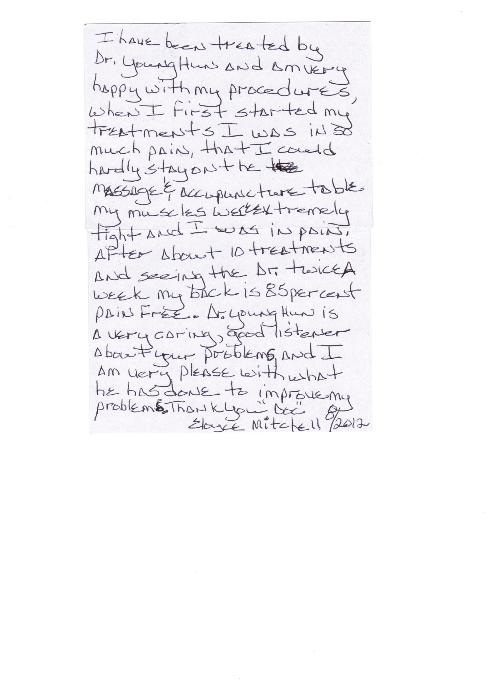 I have been treated by
Dr. Young Hun and am very
happy with my procedures,
when I first started my
treatments I was in so
much pain, that I could
hardly stay on the
massage & accupuncture table.
my muscles were extremely
tight and I was in pain.
After about 10 treatments
and seeing the Dr. twice A
week my back is 85 percent
pain free. Dr. Young Hun is
a very caring, good listener
about your problems, and I
am very please with what
he has done to improve my
problems. Thank you "Doc"
Mitchell /2012